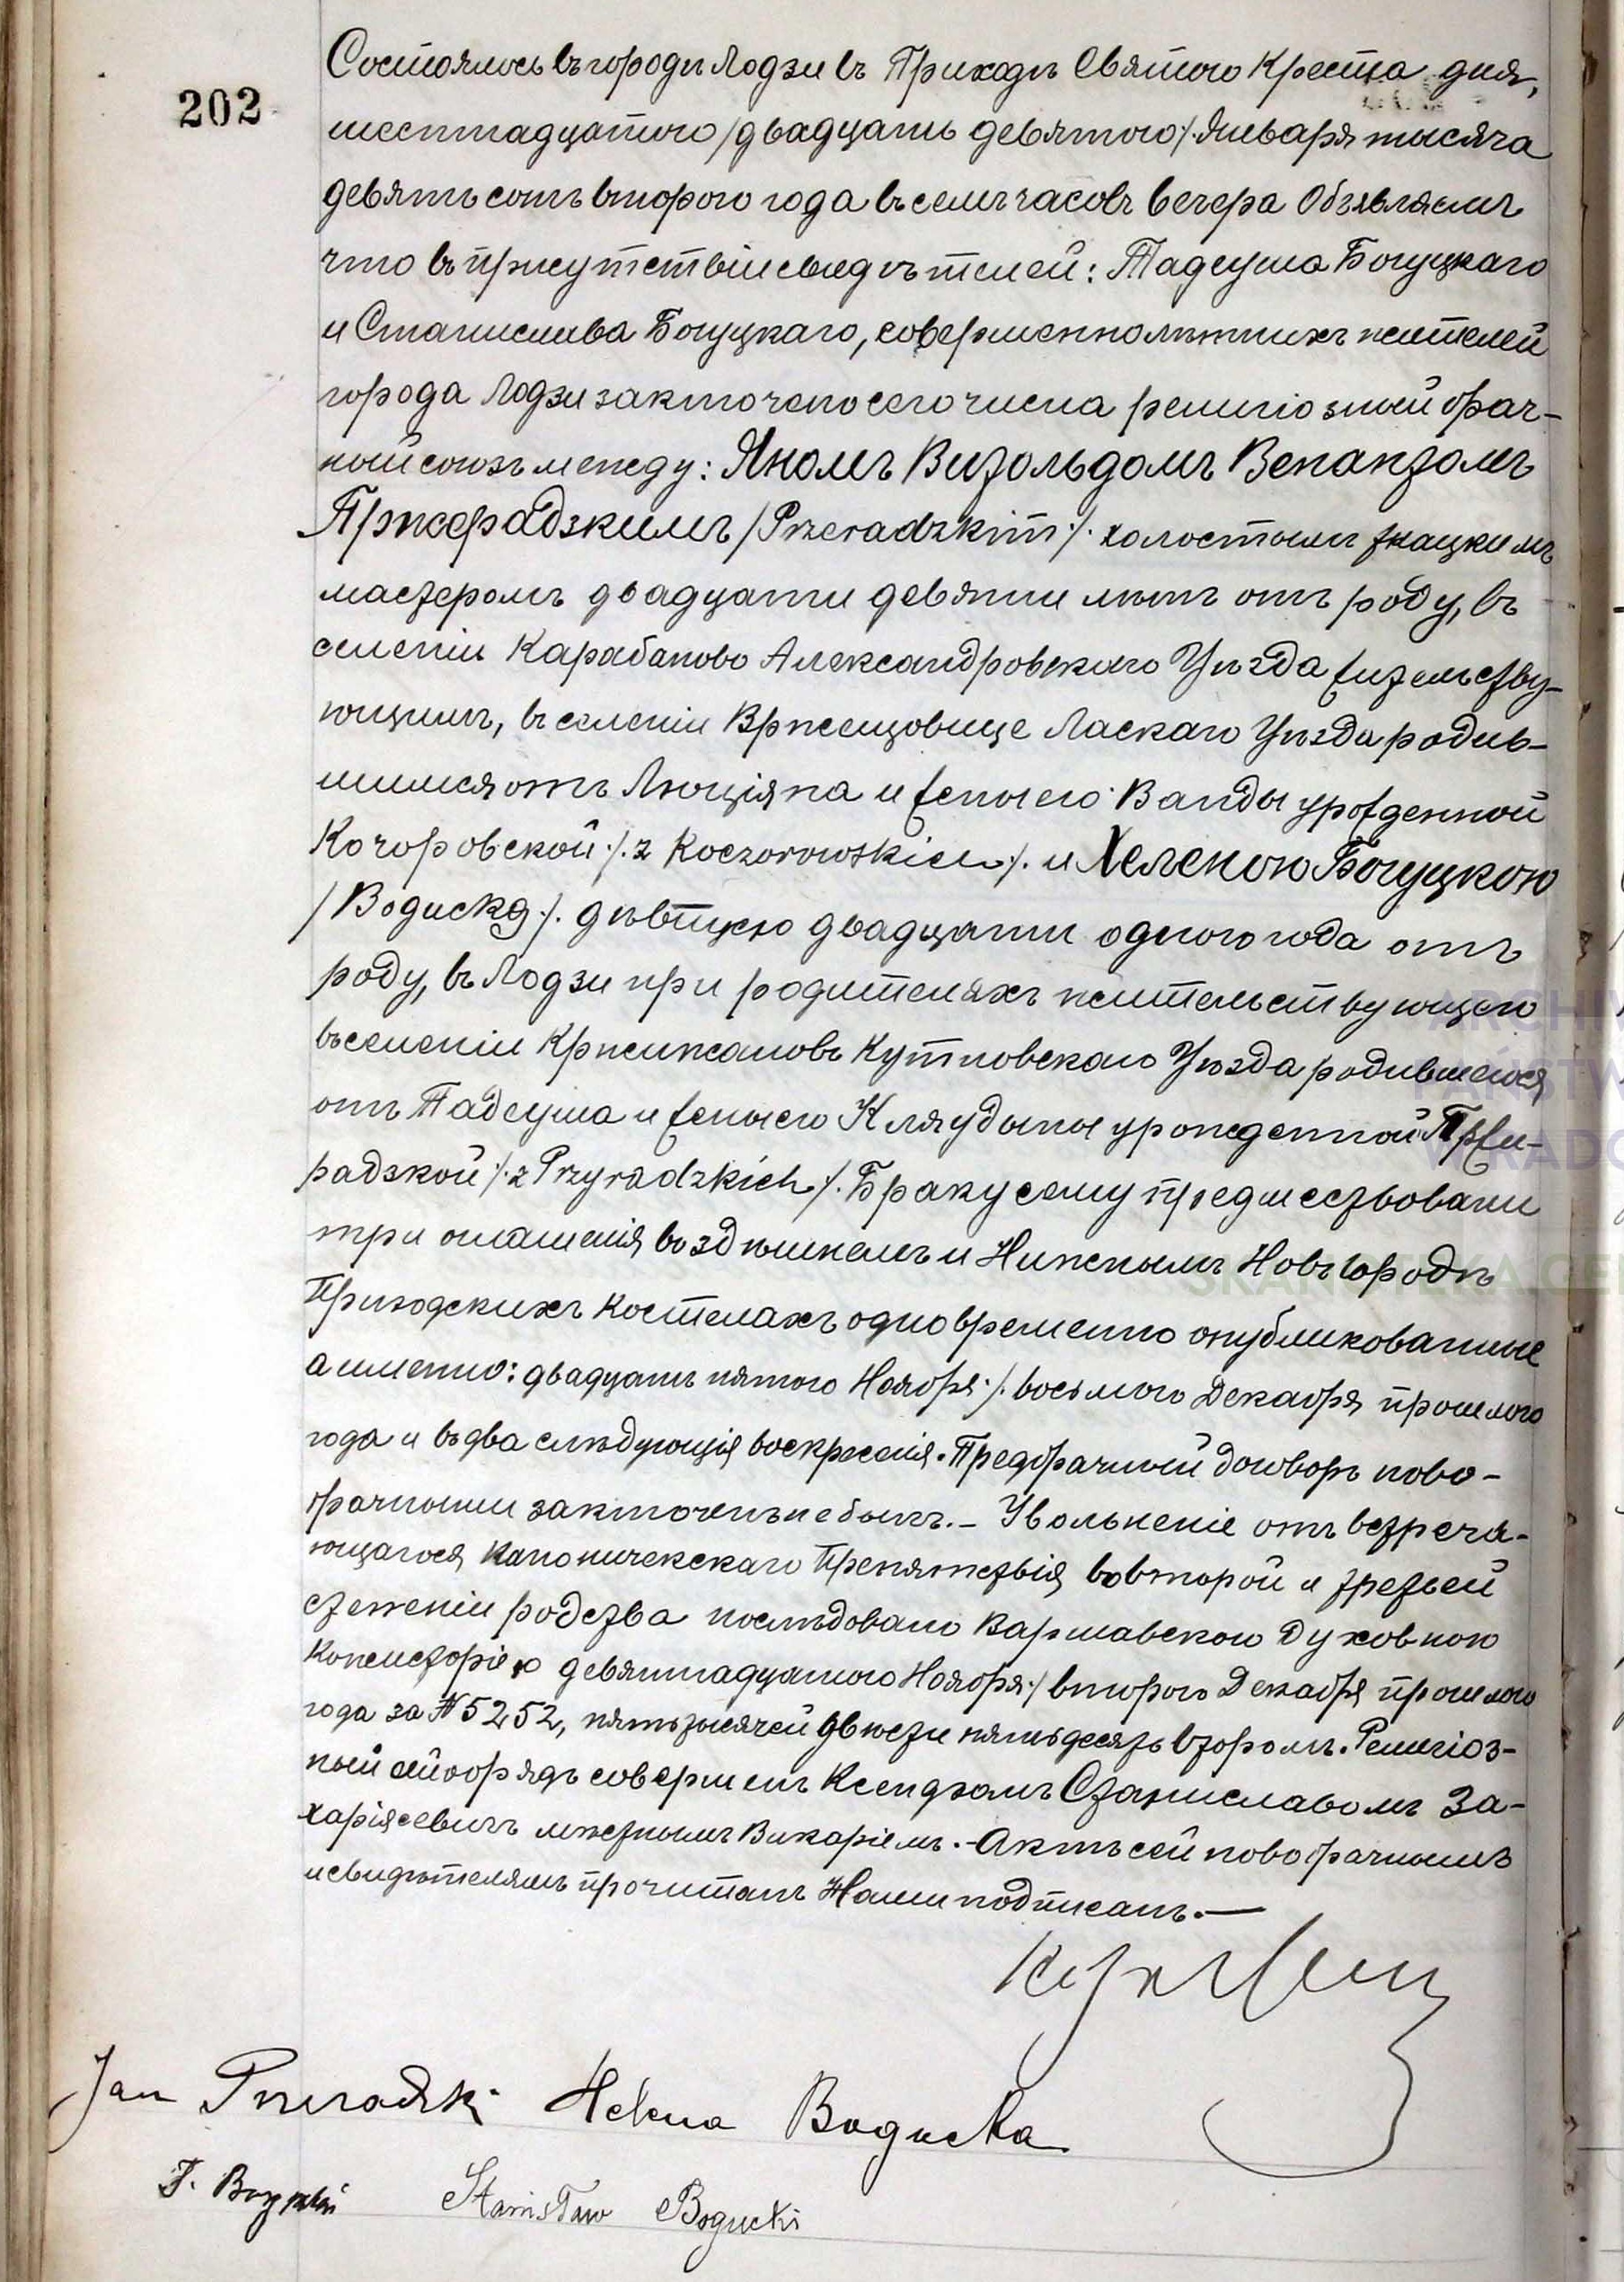 202
Состоялось въ городѣ Лодзи въ Приходѣ Святого Креста дня,
шестнадцатого /двадцать девятого/. Января тысяча
девятьсотъ второго года въ семь часовъ вечера Объявляемъ
что въ присутствіи свидѣтелей: Тадеуша Богуцкаго
и Станислава Богуцкаго, совершеннолѣтнихъ жителей
города Лодзи заключено сего числа религіозный брач-
ный союзъ между: Яномъ Витольдомъ Венантомъ
Пржерадзкимъ /Przeradzkim/. холостымъ ткацкимъ
мастеромъ двадцати девяти лѣтъ отъ роду, въ
селеніи Карабаново Александровскаго Уѣзда жительству-
ющимъ, въ селеніи Вржещовице Ласкаго Уѣзда родив-
шимся отъ Люціяна и жены его Ванды урожденной
Кочоровской /. z Koczorowskich /. и Хеленою Богуцкою
/Bogucką /. дѣвицею двадцати одного года отъ
роду, въ Лодзи при родителяхъ жительствующею
въ селеніи Кржижановъ Кутновскаго Уѣзда родившеюся
отъ Тадеуша и жены его Кляудыны урожденной Пржи-
радзкой /. z Przyradzkich /. Браку сему предшествовали
три оглашенія въ здѣшнемъ и Нижнымъ Новгородѣ
Приходскихъ костелахъ одновременно опубликованные
а именно: двадцать пятого Ноября /. восьмого Декабря прошлого
года и въ два слѣдующія воскресенія. Предбрачный договоръ ново-
брачными заключенъ не былъ. – Увольненіе отъ встреча-
ющагося каноническаго Препятствія во второй и третьей
степени родства послѣдовало Варшавскою Духовною
Консисторіею девятнадцатого Ноября / второго Декабря прошлого
года за № 5252, пять тысячей двѣсти пятьдесятъ вторымъ. Религіоз-
ный сей обрядъ совершенъ Ксендзомъ Станиславомъ За-
харіясевичъ мѣстнымъ Викаріемъ. – Актъ сей новобрачнымъ
и свидѣтелямъ прочитанъ Нами подписанъ. —
Jan Przeradzki Helena Bogucka
T. Bogucki Stanisław Bogucki